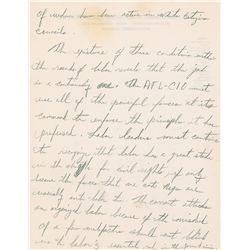 of unions have been active in white citizens
councils.
The existence of these conditions within
the ranks of labor reveals that the job
is a continuing one. The AFL-CIO must
use all of the powerful forces at its
command to enforce the principles it has
professed. Labor leaders must continue
to recognize that labor has a great stake
in the struggle for civil rights, if only
because the forces that are anti-Negro are
usually anti-labor too. The current attacks
on organized labor because of the misdeeds
of a few malefactors should not blind
us to labor's essential role in the